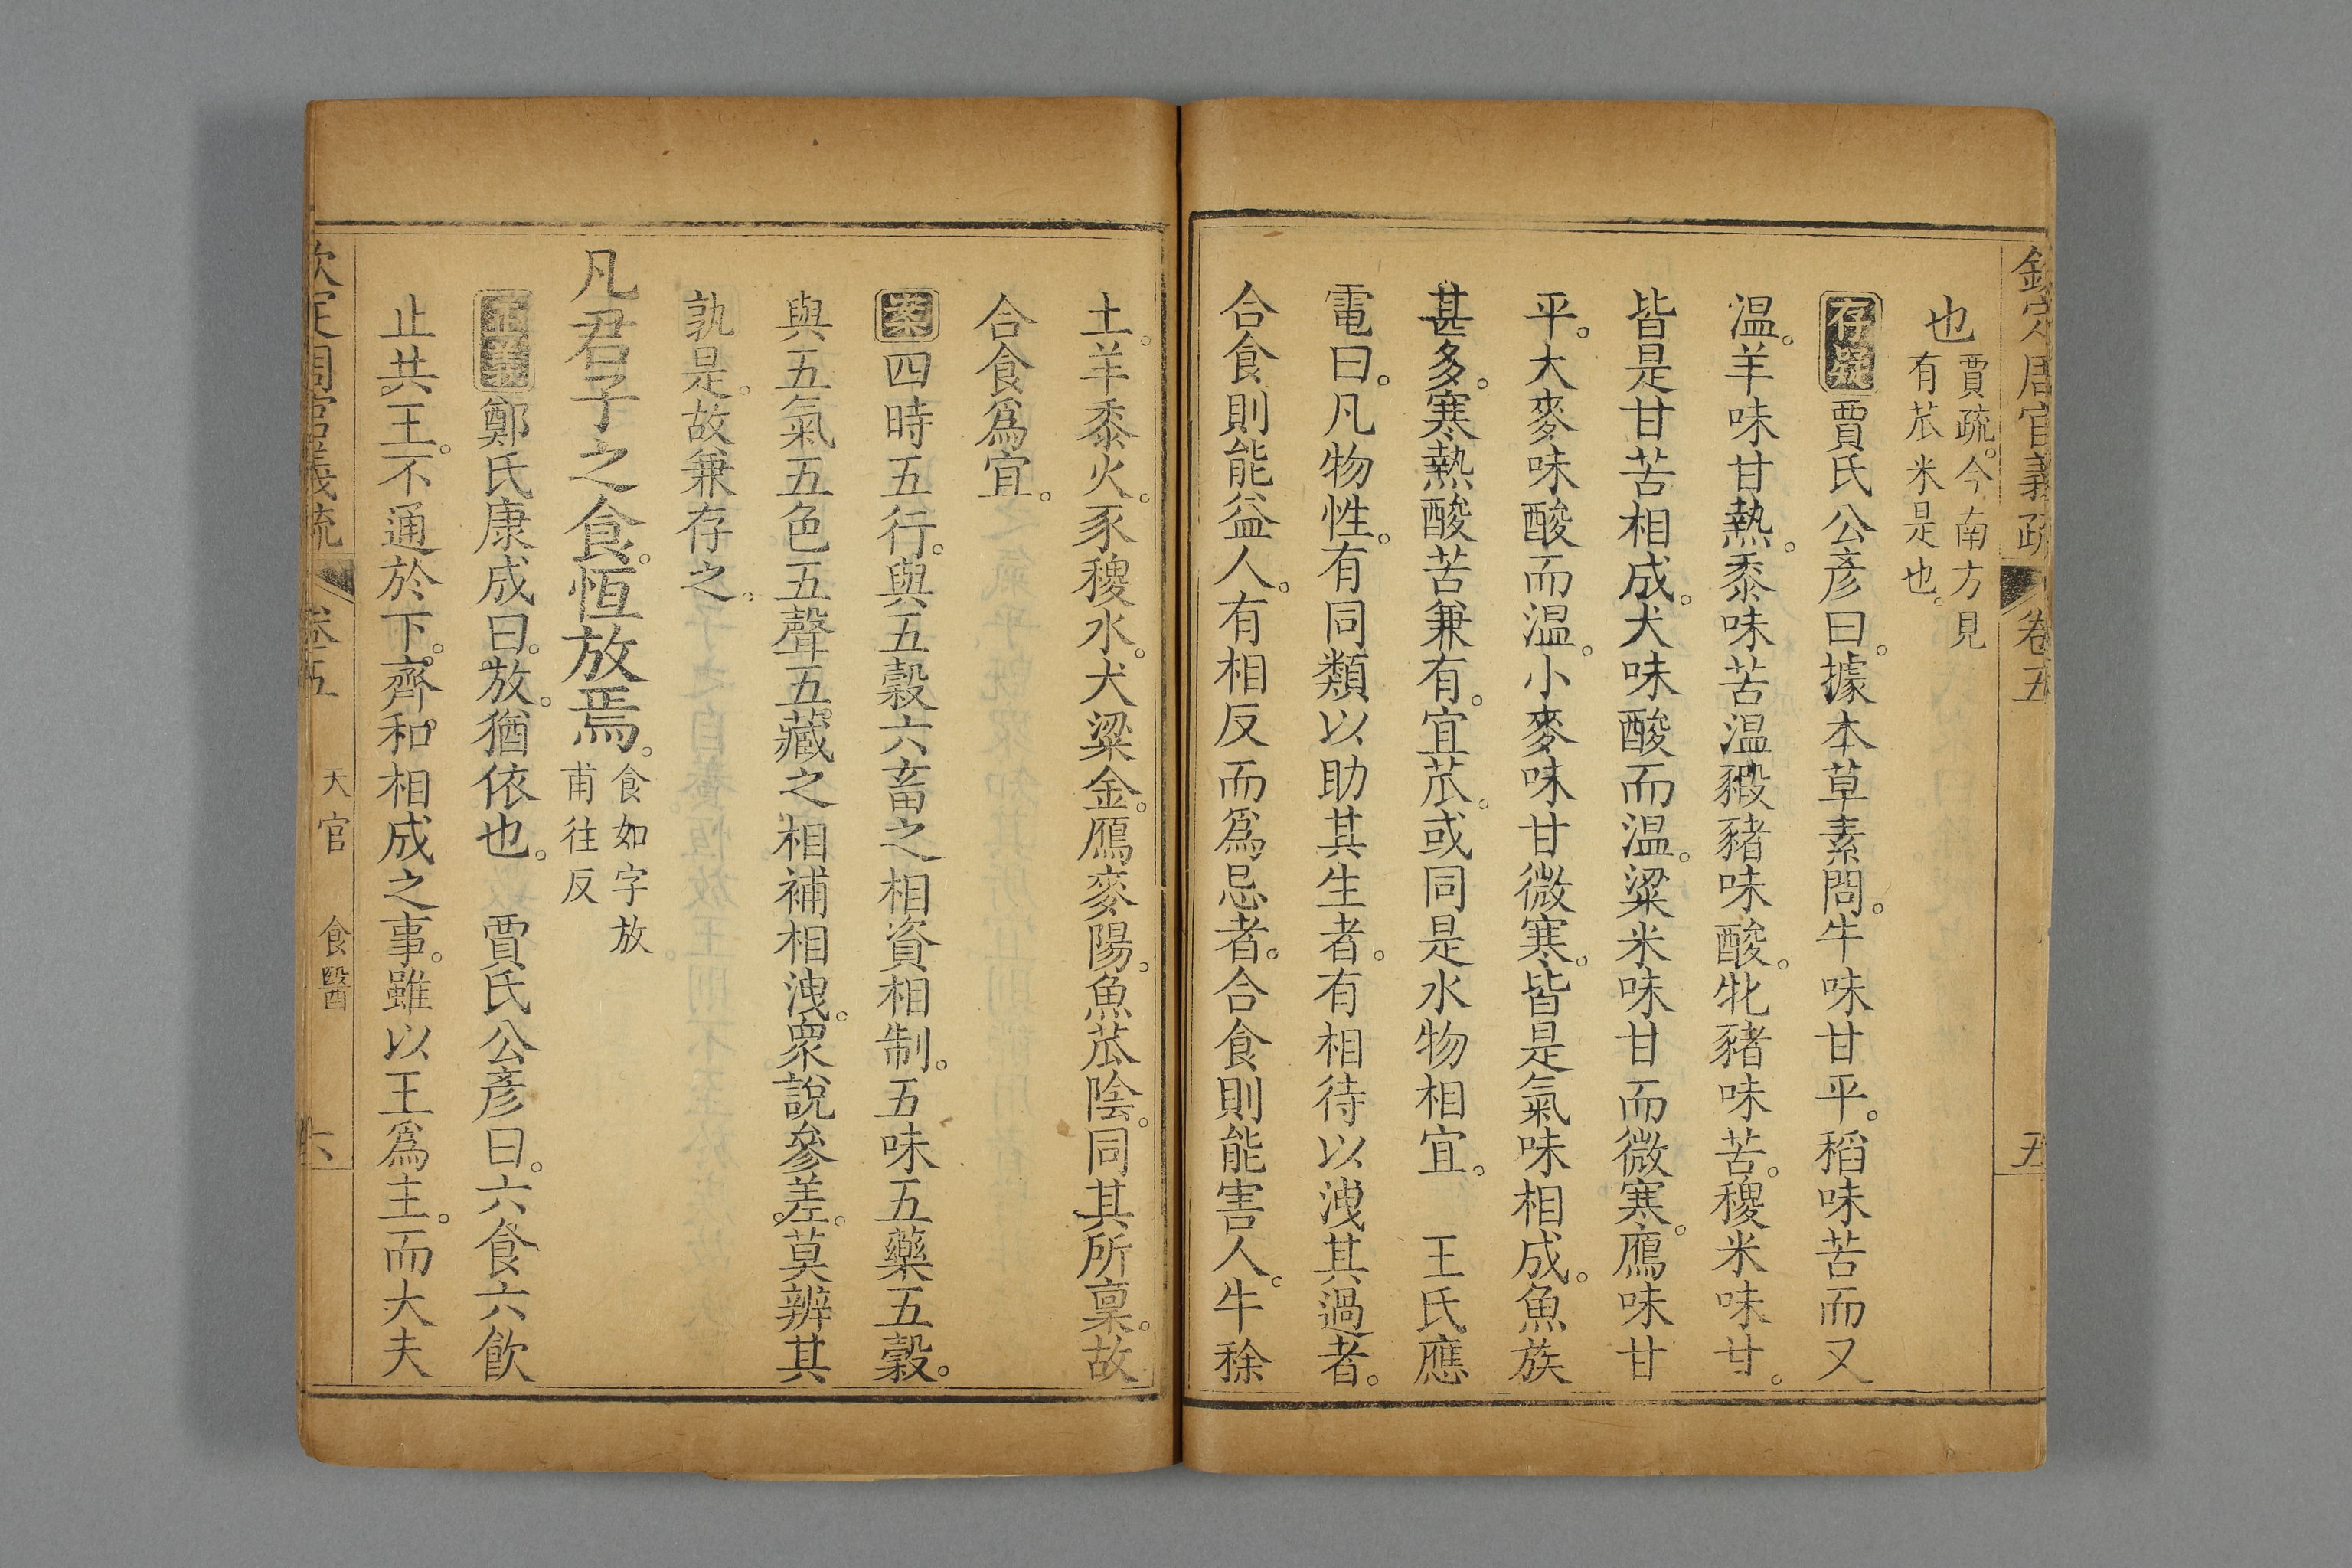 欽定周官義疏 卷五 五
也賈疏。今南方見
有苽米是也。
存疑賈氏公彦曰。據本草素問。牛味甘平。稻味苦而又
温。羊味甘熱。黍味苦温豭豬味酸。牝豬味苦。稷米味甘。
皆是甘苦相成。犬味酸而温。粱米味甘而微寒。鴈味甘
平。大麥味酸而温。小麥味甘微寒。皆是氣味相成。魚族
甚多。寒熱酸苦兼有。宜苽。或同是水物相宜。　王氏應
電曰。凡物性。有同類以助其生者。有相待以洩其過者。
合食則能益人。有相反而爲忌者。合食則能害人。牛稌
土。羊黍火。豕稷水。犬粱金。鴈麥陽。魚苽陰。同其所稟。故
合食爲宜。
案四時五行。與五穀六畜之相資相制。五味五藥五穀。
與五氣五色五聲五藏之相補相洩。衆說參差。莫辨其
孰是。故兼存之。
凡君子之食。恆放焉。食如字放
甫往反
正義鄭氏康成曰。放。猶依也。　賈氏公彦曰。六食六飲
止共王。不通於下。齊和相成之事。雖以王爲主。而大夫
欽定周官義疏 卷五 天官 食醫 六